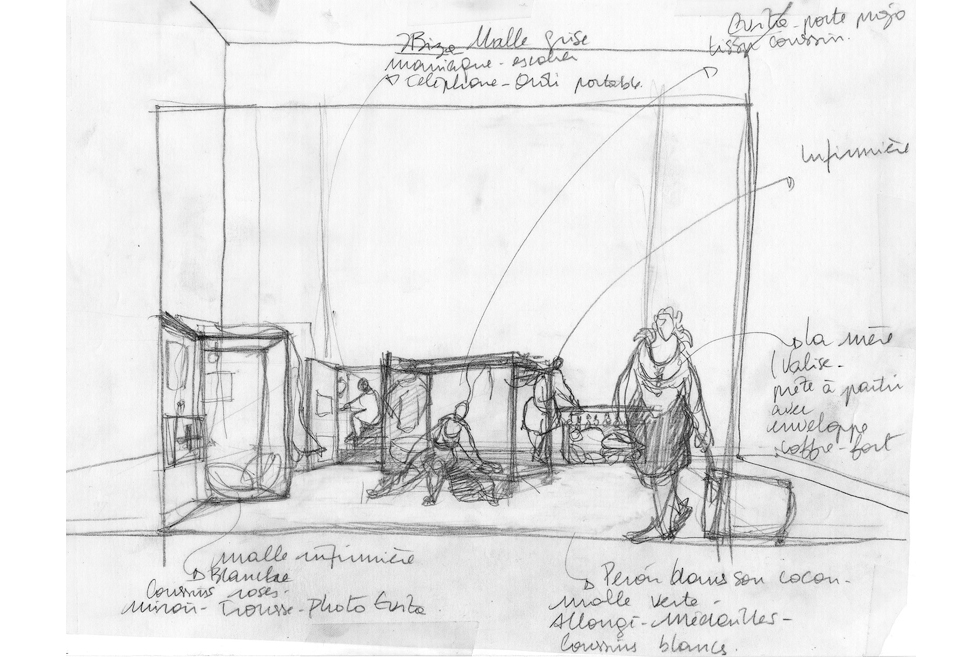 Ibiza Malle grise
mannequin - escalier
téléphone - Ordi portable.
Evita - porte
tissu coussin.
Infirmière
La mère
(Valise -
prête à partir
avec
enveloppe
coffre-fort
malle infirmière
Blanche
Coussins roses -
miroir - Trousse - photo Evita
Perón dans son cocon -
malle verte -
Allongé - Médailles -
Coussins blancs.